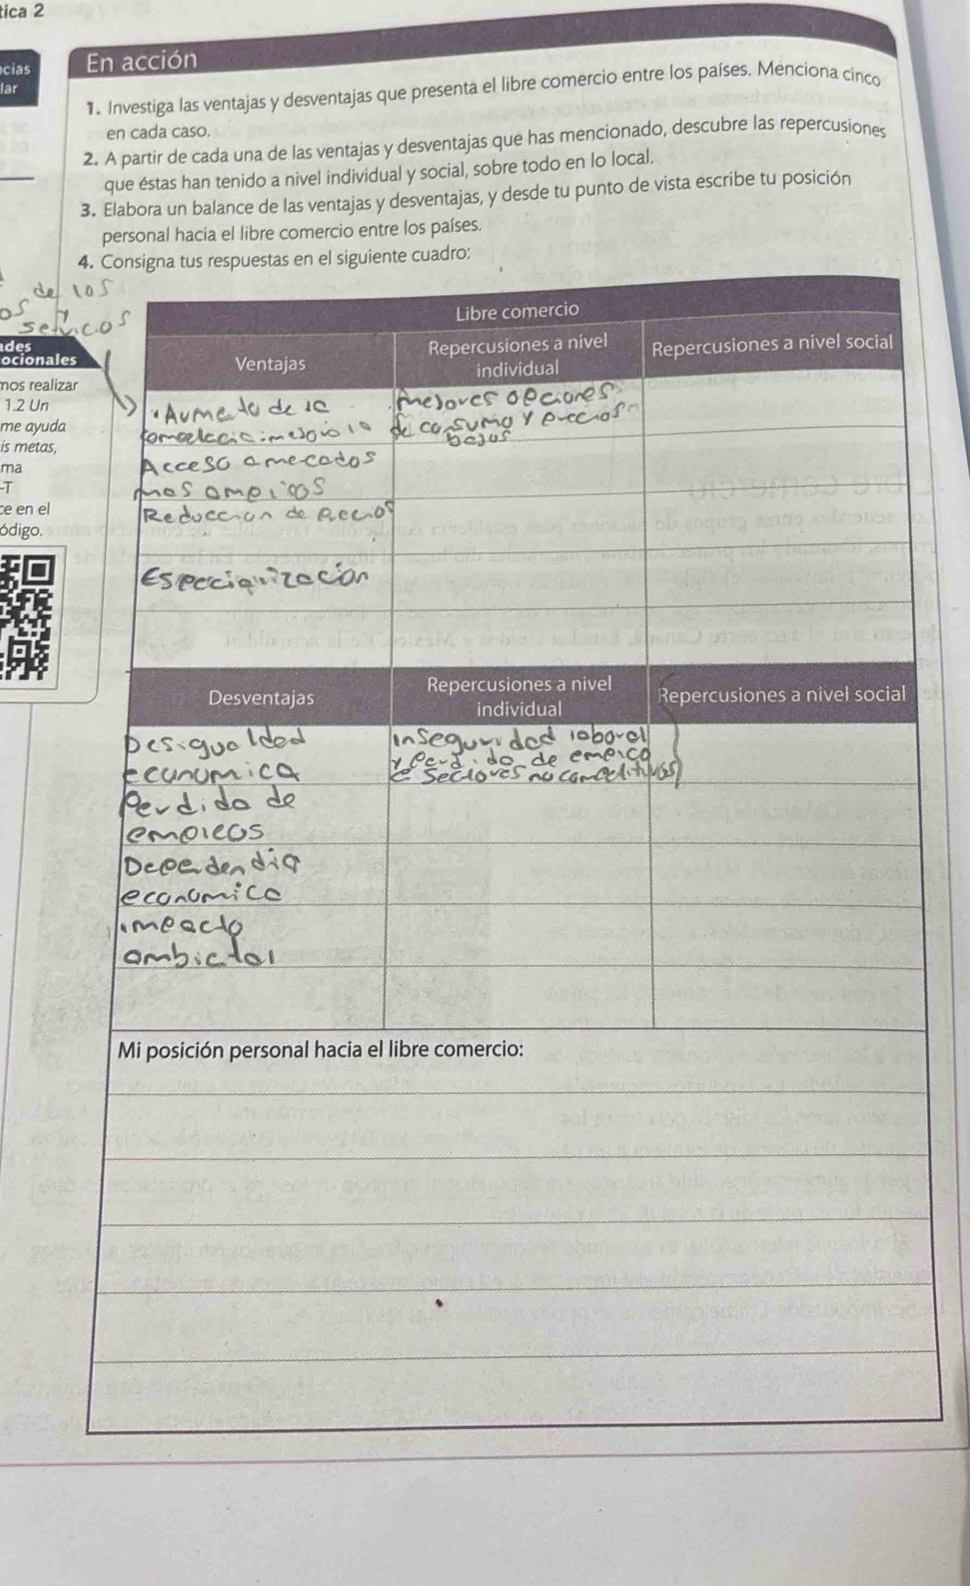 tica 2
cias
lar
En acción
1. Investiga las ventajas y desventajas que presenta el libre comercio entre los países. Menciona cinco
en cada caso.
2. A partir de cada una de las ventajas y desventajas que has mencionado, descubre las repercusiones
que éstas han tenido a nivel individual y social, sobre todo en lo local.
3. Elabora un balance de las ventajas y desventajas, y desde tu punto de vista escribe tu posición
personal hacia el libre comercio entre los países.
4. Consigna tus respuestas en el siguiente cuadro:
de los
os y
servicos
ades
ocionales
mos realizar
1.2 Un
me ayuda
is metas,
ma
-T
ce en el
ódigo.
Libre comercio
Ventajas
Repercusiones a nivel
individual
Repercusiones a nivel social
Aumeto de la
mejores opciones
de consumo y precios
bajos
Acceso a mecados
mas amplios
Reduccion de Precios
Desventajas
Repercusiones a nivel
individual
Repercusiones a nivel social
Desigualdad
economica
Perdida de
empleos
economica
impacto
ambictal
inseguridad laboral
y perdido de empleo
e sectores no competitivos
Mi posición personal hacia el libre comercio: